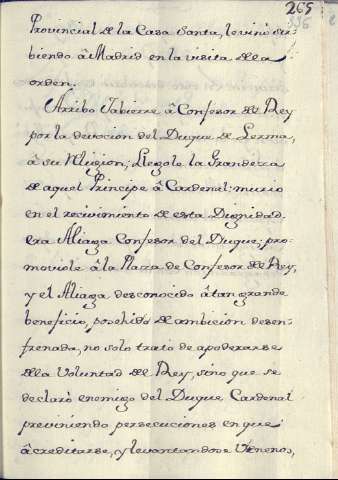 265
336
Provincial de la Casa Santa, le vino sir-
biendo â Madrid en la visita de la
orden.
Arribo Jabierre â Confesor del Rey
por la devocion del Duque de Lerma,
â su Religion; Llegolo la Grandeza
de aquel Principe â Cardenal: murio
en el recivimiento de esta Dignidad.
era Aliaga Confesor del Duque; pro-
moviole â la Plaza de Confesor del Rey,
y el Aliaga desconocido â tan grande
beneficio, poshido de ambicion desen-
frenada, no solo trato de apoderarse
de la Voluntad del Rey, sino que se
declarò enemigo del Duque Cardenal
previniendo persecuciones en que
âcreditarse, y levantandose Venenos,